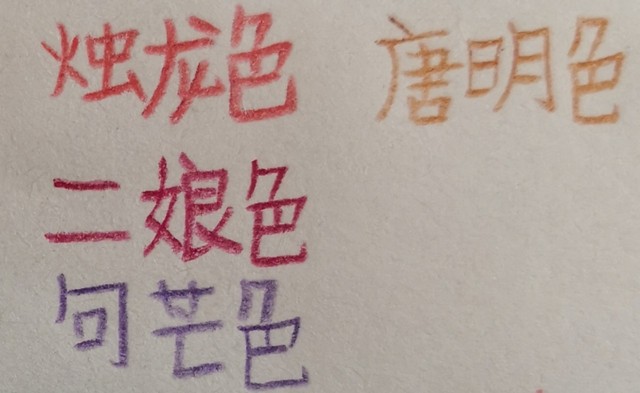 烛龙色 唐明色
二娘色
句芒色